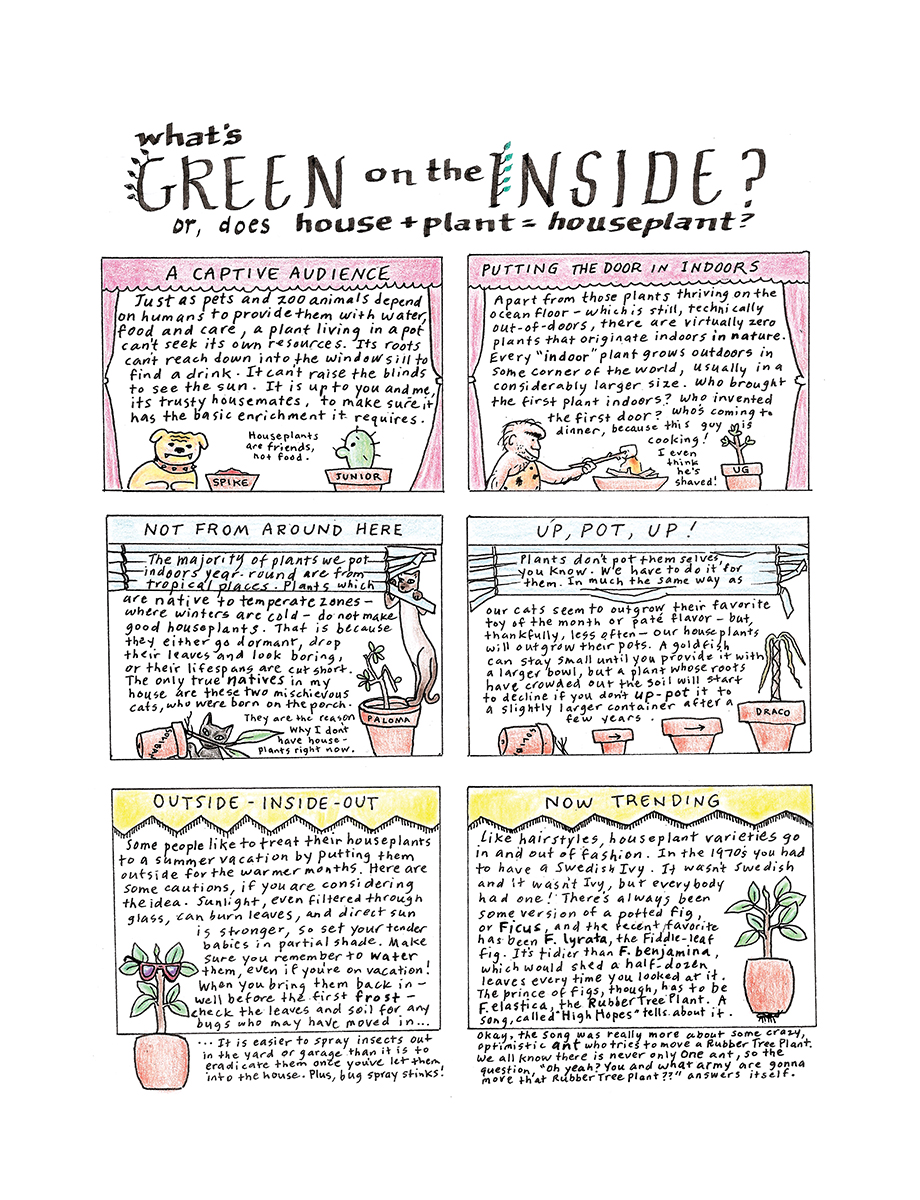 what's
GREEN on the INSIDE?
or, does house + plant = houseplant?
A CAPTIVE AUDIENCE
Just as pets and zoo animals depend
on humans to provide them with water,
food and care, a plant living in a pot
can't seek its own resources. Its roots
can't reach down into the windowsill to
find a drink. It can't raise the blinds
to see the sun. It is up to you and me,
its trusty housemates, to make sure it
has the basic enrichment it requires.
Houseplants
are friends,
not food.
SPIKE
JUNIOR
PUTTING THE DOOR IN INDOORS
Apart from those plants thriving on the
ocean floor – which is still, technically
out-of-doors, there are virtually zero
plants that originate indoors in nature.
Every "indoor" plant grows outdoors in
some corner of the world, usually in a
considerably larger size. Who brought
the first plant indoors? Who invented
the first door? Who's coming to
dinner, because this guy is
cooking!
I even
think
he's
shaved!
UG
NOT FROM AROUND HERE
The majority of plants we pot
indoors year-round are from
tropical places. Plants which
are native to temperate zones –
where winters are cold – do not make
good houseplants. That is because
they either go dormant, drop
their leaves and look boring,
or their lifespans are cut short.
The only true natives in my
house are these two mischievous
cats, who were born on the porch.
They are the reason
why I don't
have house-
plants right now.
PALOMA
UP, POT, UP!
Plants don't pot themselves,
you know. We have to do it for
them. In much the same way as
our cats seem to outgrow their favorite
toy of the month or paté flavor – but,
thankfully, less often – our houseplants
will outgrow their pots. A goldfish
can stay small until you provide it with
a larger bowl, but a plant whose roots
have crowded out the soil will start
to decline if you don't up-pot it to
a slightly larger container after a
few years.
→
→
DRACO
OUTSIDE - INSIDE-OUT
Some people like to treat their houseplants
to a summer vacation by putting them
outside for the warmer months. Here are
some cautions, if you are considering
the idea. Sunlight, even filtered through
glass, can burn leaves, and direct sun
is stronger, so set your tender
babies in partial shade. Make
sure you remember to water
them, even if you're on vacation!
When you bring them back in –
well before the first frost –
check the leaves and soil for any
bugs who may have moved in...
... It is easier to spray insects out
in the yard or garage than it is to
eradicate them once you've let them
into the house. Plus, bug spray stinks!
NOW TRENDING
Like hairstyles, houseplant varieties go
in and out of fashion. In the 1970's you had
to have a Swedish Ivy. It wasn't Swedish
and it wasn't Ivy, but everybody
had one! There's always been
some version of a potted fig,
or Ficus, and the recent favorite
has been F. lyrata, the Fiddle-leaf
fig. It's tidier than F. benjamina,
which would shed a half-dozen
leaves every time you looked at it.
The prince of figs, though, has to be
F. elastica, the Rubber Tree Plant. A
song, called "High Hopes" tells about it.
Okay, the song was really more about some crazy,
optimistic ant who tries to move a Rubber Tree Plant.
We all know there is never only one ant, so the
question, "Oh yeah? You and what army are gonna
move that Rubber Tree Plant??" answers itself.